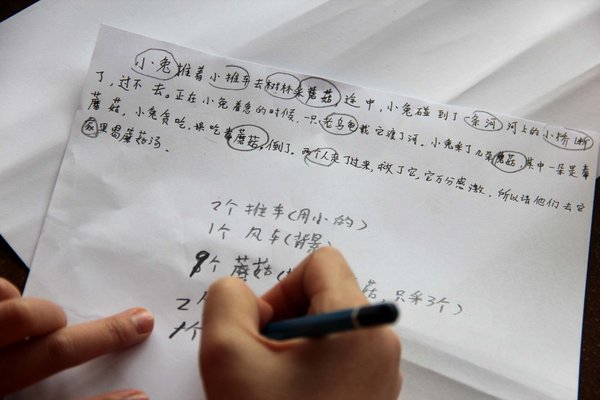 小兔推着小推车去树林采蘑菇 途中,小兔碰到了一条河 河上的小桥断
了,过不去。正在小兔着急的时候,一只老乌龟载它渡了河。小兔采了几朵蘑菇,其中一朵是毒
蘑菇,小兔贪吃,误吃毒蘑菇,倒了。两个人走了过来,救了它,它万分感激,所以请他们去它
家里喝蘑菇汤。
2个 推车(用小的)
1个 风车(背景)
9个 蘑菇( 菇,只采3个)
2个
1个